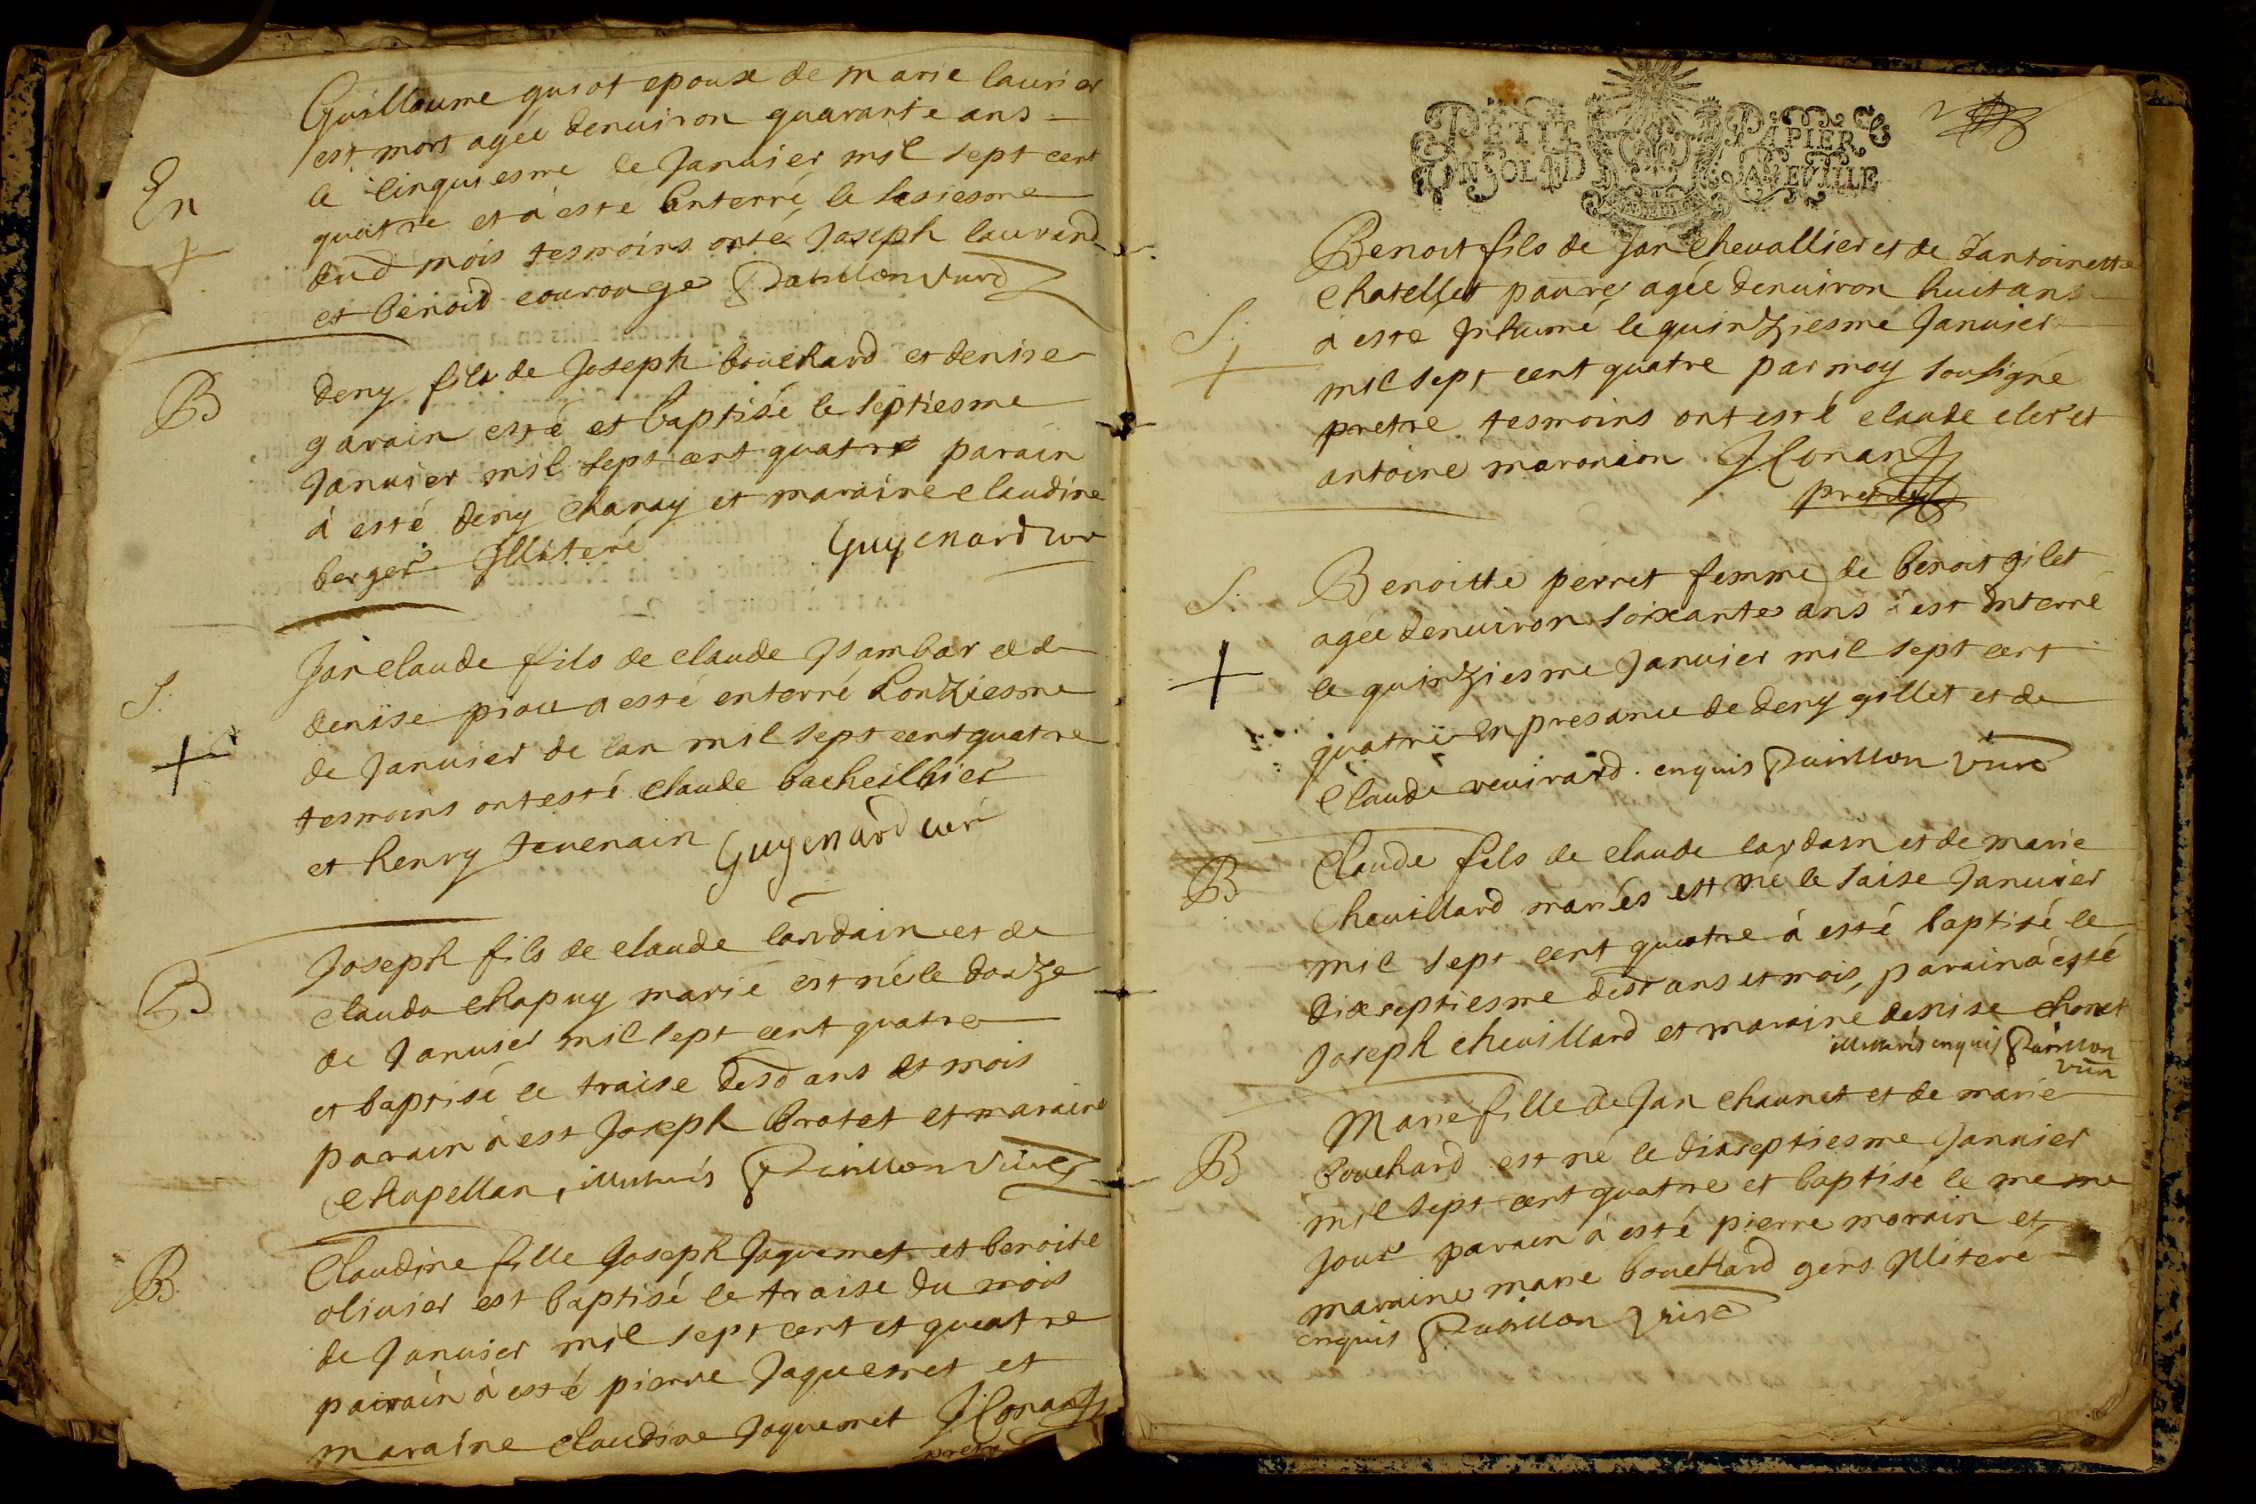 Guillaume guiot epoux de marie laurier
est mort agée denuiron quarante ans
En
le cinquiesme le Januier mil sept cent
quatre et a esté enterré le sixiesme
dud mois tesmoins onté Joseph laurand
et benoid courouge
B
deny fils de Joseph bouchard et denise
garain esté et baptisé le septiesme
Januier mil sept cent quatre parain
à esté deny Chanay et maraine claudine
berger Illiteré Guyenard
Jan claude fils de claude Isambar et de
S.
denise piou a esté enterré Lonziesme
de Januier de lan mil sept cent quatre
tesmoins ont esté claude bacheillier
et henry teuenain Guyenard
Joseph fils de claude lardain et de
B
clauda chapuy marié est né le douze
de Januier mil sept cent quatre
et baptisé le traise desd ans et mois
parain à est Joseph brotet et maraine
chapellan,
B
Claudine fille Joseph Jaquemet et benoite
oliuier est baptisé le traise du mois
de Januier mil sept cent et quatre
parain à esté pierre Jaquemet et
maraine claudine Jaquemet
PETIT PAPIER
Benoit fils de Jan cheuallier et de Dantoinette
chatellet pauure agée denuiron huit ans
S.
a este Inhumé le quinziesme Januier
mil sept cent quatre par moy soussigné
pretre tesmoins ont esté claude cler et
antoine maronion
pretre
S.
Benoitte perret femme de benoit gilet
agée denuiron soixante ans est Interré
le quinziesme Januier mil sept cent
quatre en presance de deny gillet et de
Claude reuirard. enquis
B
Claude fils de claude lardain et de marie
Cheuillard mariés est né le saise Januier
mil sept cent quatre à esté baptisé le
dixseptiesme desd ans et mois, parain à esté
Joseph cheuillard et maraine denise chonet
enquis
Marie fille de Jan chaunet et de marie
B
bouchard est né le dixseptiesme Januier
mil sept cent quatre et baptisé le meme
Jour parain à esté pierre morain et
maraine marie bouchard gens Illiteré
enquis